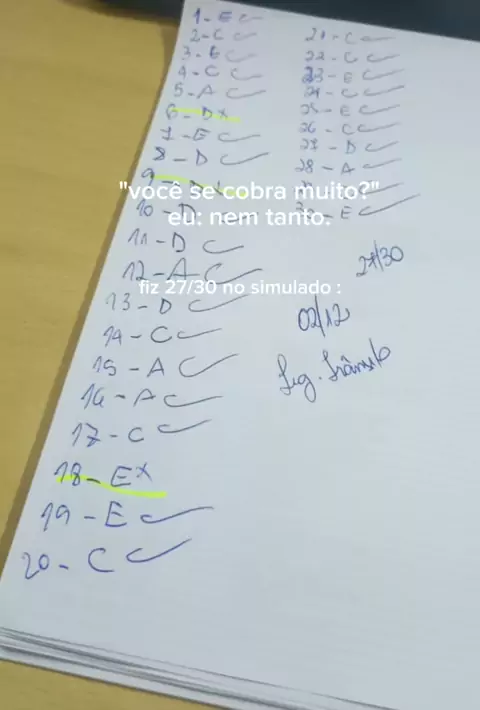 1-E
2-C
3-E
4-C
5-A
6-Dx
7-E
8-D
9-
"você se cobra muito?"
10-D
eu: nem tanto.
11-D
12-A
fiz 27/30 no simulado :
13-D
14-C
15-A
16-A
17-C
18-Ex
19-E
20-C
21-C
22-C
23-E
24-C
25-E
26-C
27-D
28-A
30-E
27/30
02/12
Seg. Trânsito